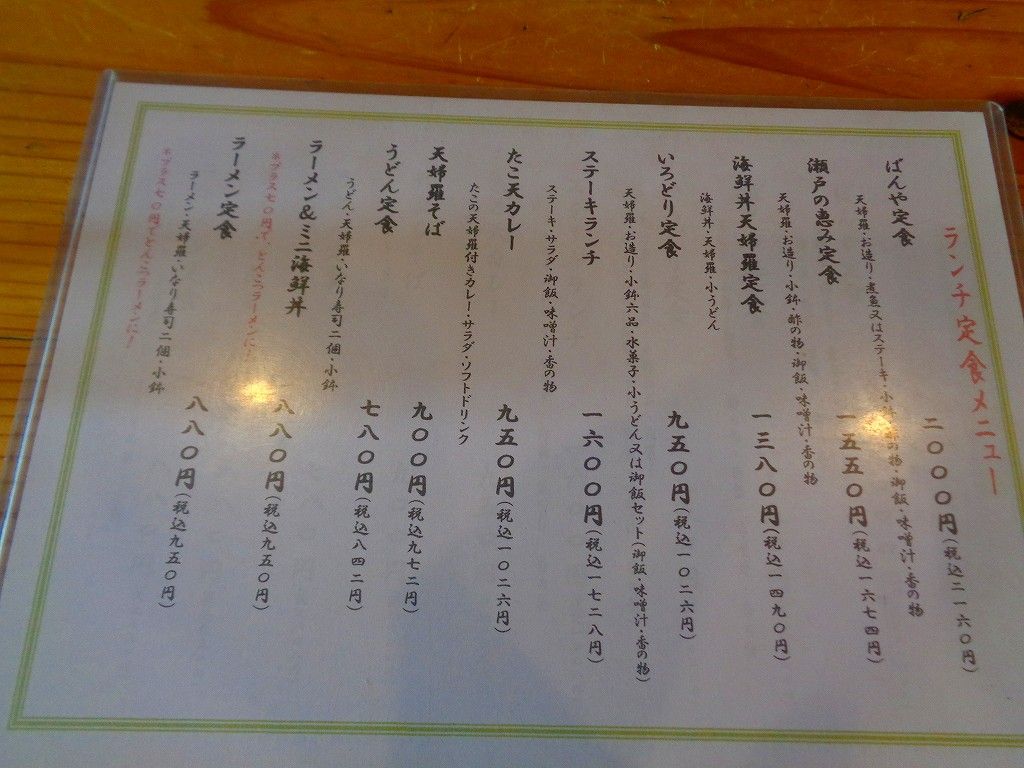 ランチ定食メニュー
ばんや定食 二〇〇〇円(税込二一六〇円)
天婦羅・お造り・煮魚又はステーキ・小鉢・酢の物・御飯・味噌汁・香の物
瀬戸の恵み定食 一五五〇円(税込一六七四円)
天婦羅・お造り・小鉢・酢の物・御飯・味噌汁・香の物
海鮮丼天婦羅定食 一三八〇円(税込一四九〇円)
海鮮丼・天婦羅・小うどん
いろどり定食 九五〇円(税込一〇二六円)
天婦羅・お造り・小鉢六品・水菓子・小うどん又は御飯セット(御飯・味噌汁・香の物)
ステーキランチ 一六〇〇円(税込一七二八円)
ステーキ・サラダ・御飯・味噌汁・香の物
たこ天カレー 九五〇円(税込一〇二六円)
たこの天婦羅付きカレー・サラダ・ソフトドリンク
天婦羅そば 九〇〇円(税込九七二円)
うどん定食 七八〇円(税込八四二円)
うどん・天婦羅・いなり寿司二個・小鉢
ラーメン&ミニ海鮮丼 八八〇円(税込九五〇円)
※プラス七〇円で、とんこつラーメンに!
ラーメン定食 八八〇円(税込九五〇円)
ラーメン・天婦羅・いなり寿司二個・小鉢
※プラス七〇円でとんこつラーメンに!